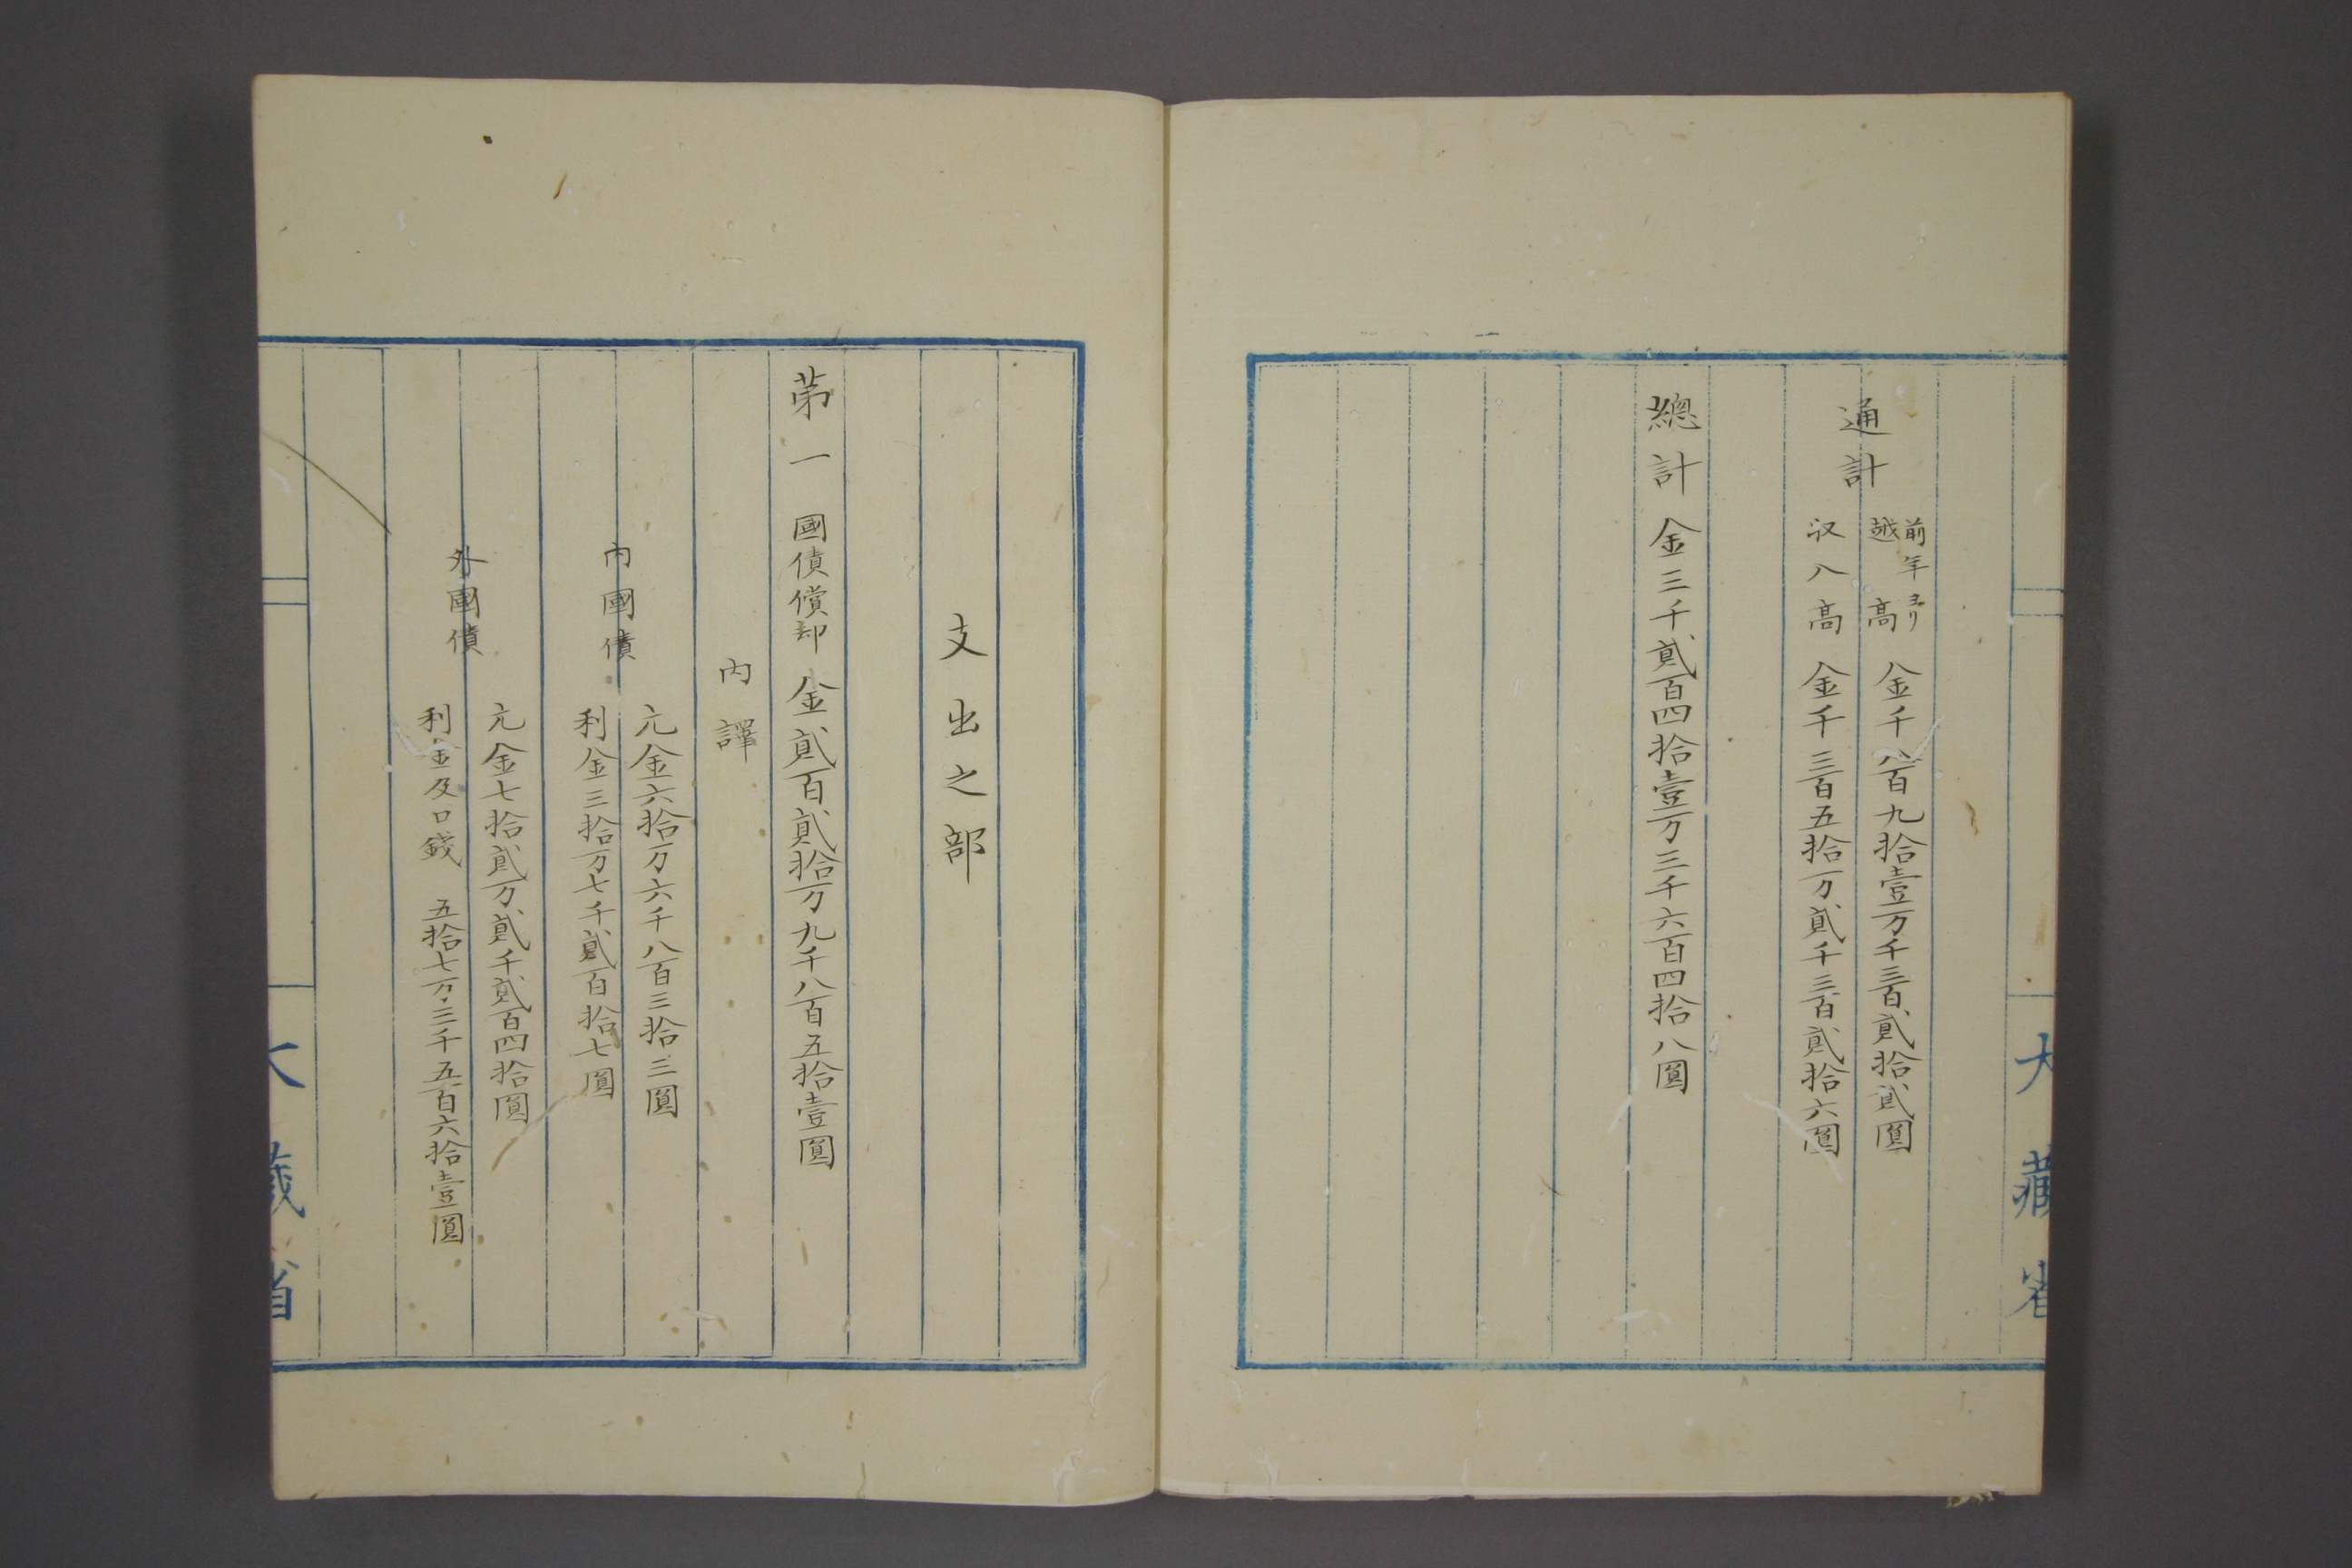 通計
前年ヨリ
越高
金千八百九拾壹万千三百貳拾貳圓
収入高
金千三百五拾万貳千三百貳拾六圓
總計 金三千貳百四拾壹万三千六百四拾八圓
大藏省
支出之部
第一 國債償却 金貳百貳拾万九千八百五拾壹圓
內譯
內國債
元金六拾万六千八百三拾三圓
利金三拾万七千貳百拾七圓
外國債
元金七拾貳万貳千貳百四拾圓
利金及口錢 五拾七万三千五百六拾壹圓
大藏省